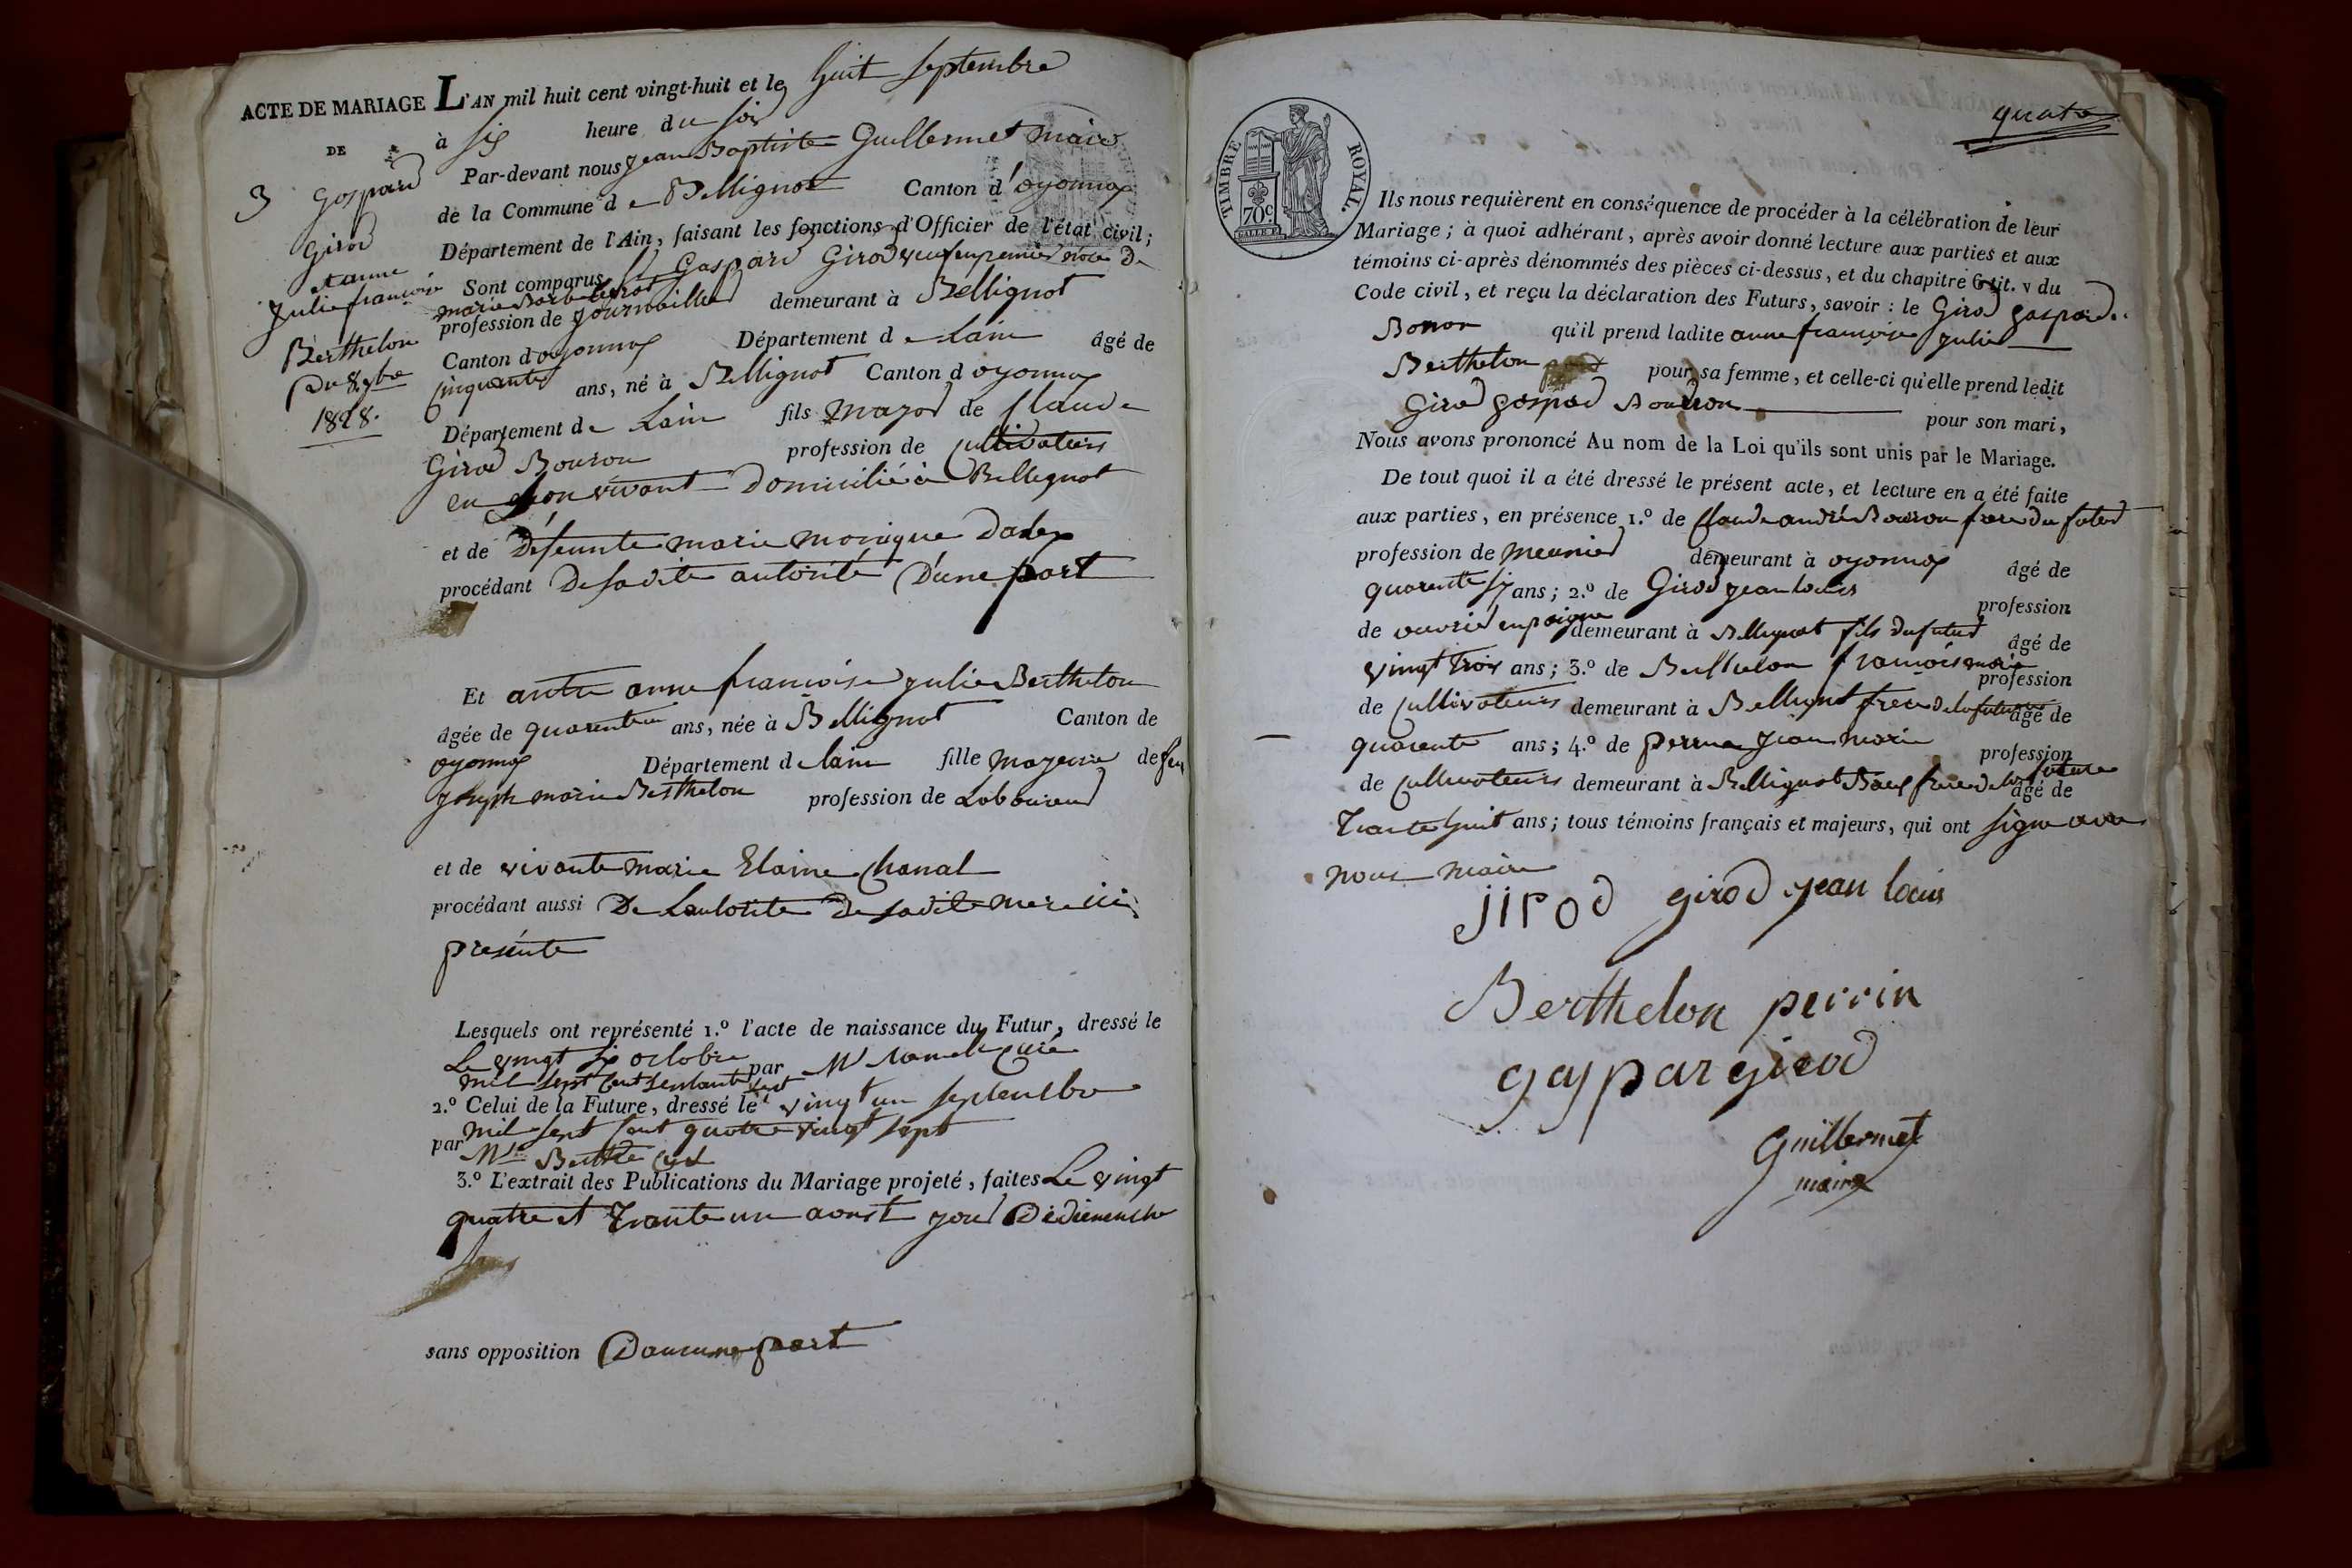 ACTE DE MARIAGE L'AN mil huit cent vingt-huit et le huit septembre
DE à six heure du soir
3 gaspard Girod et anne Julie françoise Berthelon Du 8 7bre 1828.
Par-devant nous Jean Baptiste Guillermet maire
de la Commune de Bellignat Canton d'oyonnax
Département de l'Ain, faisant les fonctions d'Officier de l'état civil;
Sont comparus Gaspard Girod veuf en premier noce De
marie
profession de journaillier demeurant à Bellignat
Canton d oyonnax Département de Lain âgé de
Cinquante ans, né à Bellignat Canton d oyonnax
Département de Lain fils mayor de Claude
Girod Bouron profession de Cultivateurs
en son vivant Domicilié à Bellignat
et de Défeunte marie monique
procédant De sadite autorité D'une part
Et autre anne francoise julie Berthelon
âgée de quarente un ans, née à Bellignat Canton de
oyonnax Département de lain fille mayeure de feu
Joseph marie Berthelon profession de Laboureur
et de vivante marie Elaine Chanal
procédant aussi De Lautorite De sadite mere ici
presente
Lesquels ont représenté 1.º l'acte de naissance du Futur, dressé le
Le vingt six octobre
mil sept cent septante sept par Mr Curé
2.º Celui de la Future, dressé le vingt un septembre
mil sept cent quatre vingt sept
par Mr
3.º L'extrait des Publications du Mariage projeté, faites Le vingt
quatre et Trante un aoust jour De diemenche
sans opposition Daucune part
quatre
TIMBRE ROYAL.
70c.
Ils nous requièrent en conséquence de procéder à la célébration de leur
Mariage; à quoi adhérant, après avoir donné lecture aux parties et aux
témoins ci-après dénommés des pièces ci-dessus, et du chapitre 6 tit. v du
Code civil, et reçu la déclaration des Futurs, savoir: le Girod gaspard
qu'il prend ladite anne francoise julie
Berthelon pour sa femme, et celle-ci qu'elle prend ledit
Girod gaspard Bouron pour son mari,
Nous avons prononcé Au nom de la Loi qu'ils sont unis par le Mariage.
De tout quoi il a été dressé le présent acte, et lecture en a été faite
aux parties, en présence 1.º de Claude andré Bouron frere du futur
profession de meunier demeurant à oyonnax âgé de
quarente six ans; 2.º de Girod jean louis profession
de ouvrier en peigne demeurant à Bellignat fils du futur âgé de
vingt trois ans; 3.º de Berthelon francois marie profession
de Cultivateurs demeurant à Bellignat frere de la future âgé de
quarente ans; 4.º de perrin jean marie profession
de Cultivateurs demeurant à Bellignat Baux frere de la future âgé de
Trante huit ans; tous témoins français et majeurs, qui ont signé avec
nous maire
jirod girod jean louis
Berthelon perrin
gaspar girod
Guillermet
maire